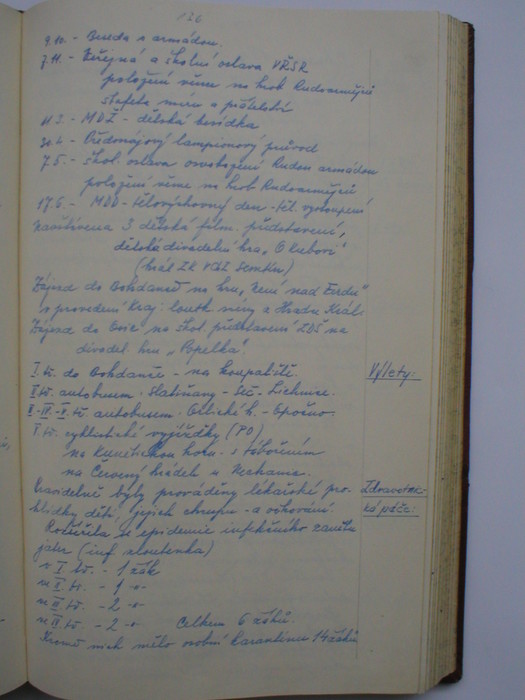 126
9.10. - Beseda s armádou.
7.11. - Veřejná a školní oslava VŘSR
položení věnce na hrob Rudoarmějců
štafeta míru a přátelství
11.3. - MDŽ - dětská besídka
30.4. - Předmájový lampionový průvod
7.5. - Škol. oslava osvobození Rudou armádou
položení věnce na hrob Rudoarmějců
17.6. - MDD - tělovýchovný den - těl. vystoupení
Navštívena 3 dětská film. představení,
dětská divadelní hra,
(hrál ZK VCHZ Semtín)
Zájezd do Bohdanče na hru, "Není nad Ferdu"
v provedení Kraj. loutk. scény z Hradu Král.
Zájezd do Osic na škol. představení ZDŠ na
divadel. hru "Popelka".
I. tř. do Bohdanče - na koupaliště. Výlety:
II. tř. autobusem: Slatiňany - Seč - Lichnice.
II-IV.-V. tř. autobusem: Orlické h. - Opočno.
V. tř. cyklistické vyjížďky (PO)
na Kunětickou horu - s tábořením
na Červený hrádek u Nechanic.
Pravidelně byly prováděny lékařské pro- Zdravotnic-
hlídky dětí, jejich chrupu - a očkování. ká péče:
Rozšířila se epidemie infekčního zánětu
jater (inf. žloutenka)
v I. tř. - 1 žák
ve II. tř. - 1 -"-
ve III. tř. - 2 -"-
ve IV. tř. - 2 -"- Celkem 6 žáků.
Kromě nich mělo osobní karanténu 14 žáků